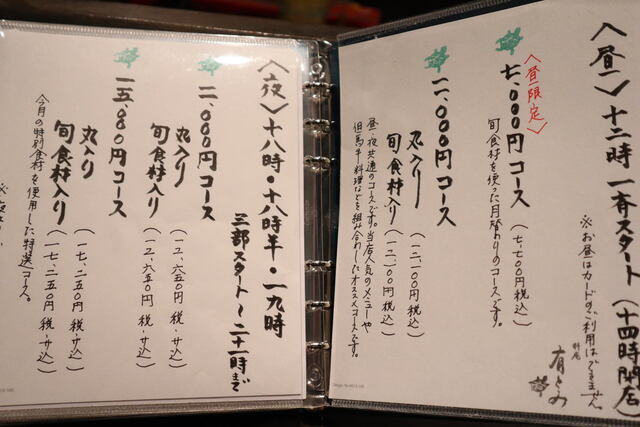 〈昼〉十二時一斉スタート(十四時閉店)
※お昼はカードのご利用はできません。
〈昼限定〉
七、000円コース (七、七00円税込)
旬食材を使った月替わりのコースです。
一一、000円コース
丸入り (一二、一00円税込)
旬食材入り (一二、一00円税込)
昼・夜共通のコースです。当店人気のメニューや
但馬牛料理などを組み合わせたオススメコースです。
〈夜〉十八時・十八時半・十九時
三部スタート〜二十一時まで
一一、000円コース
丸入り (一二、六五0円税・サ込)
旬食材入り (一二、六五0円税・サ込)
一五、000円コース
丸入り (一七、二五0円税・サ込)
旬食材入り (一七、二五0円税・サ込)
今月の特別食材を使用した特選コース。